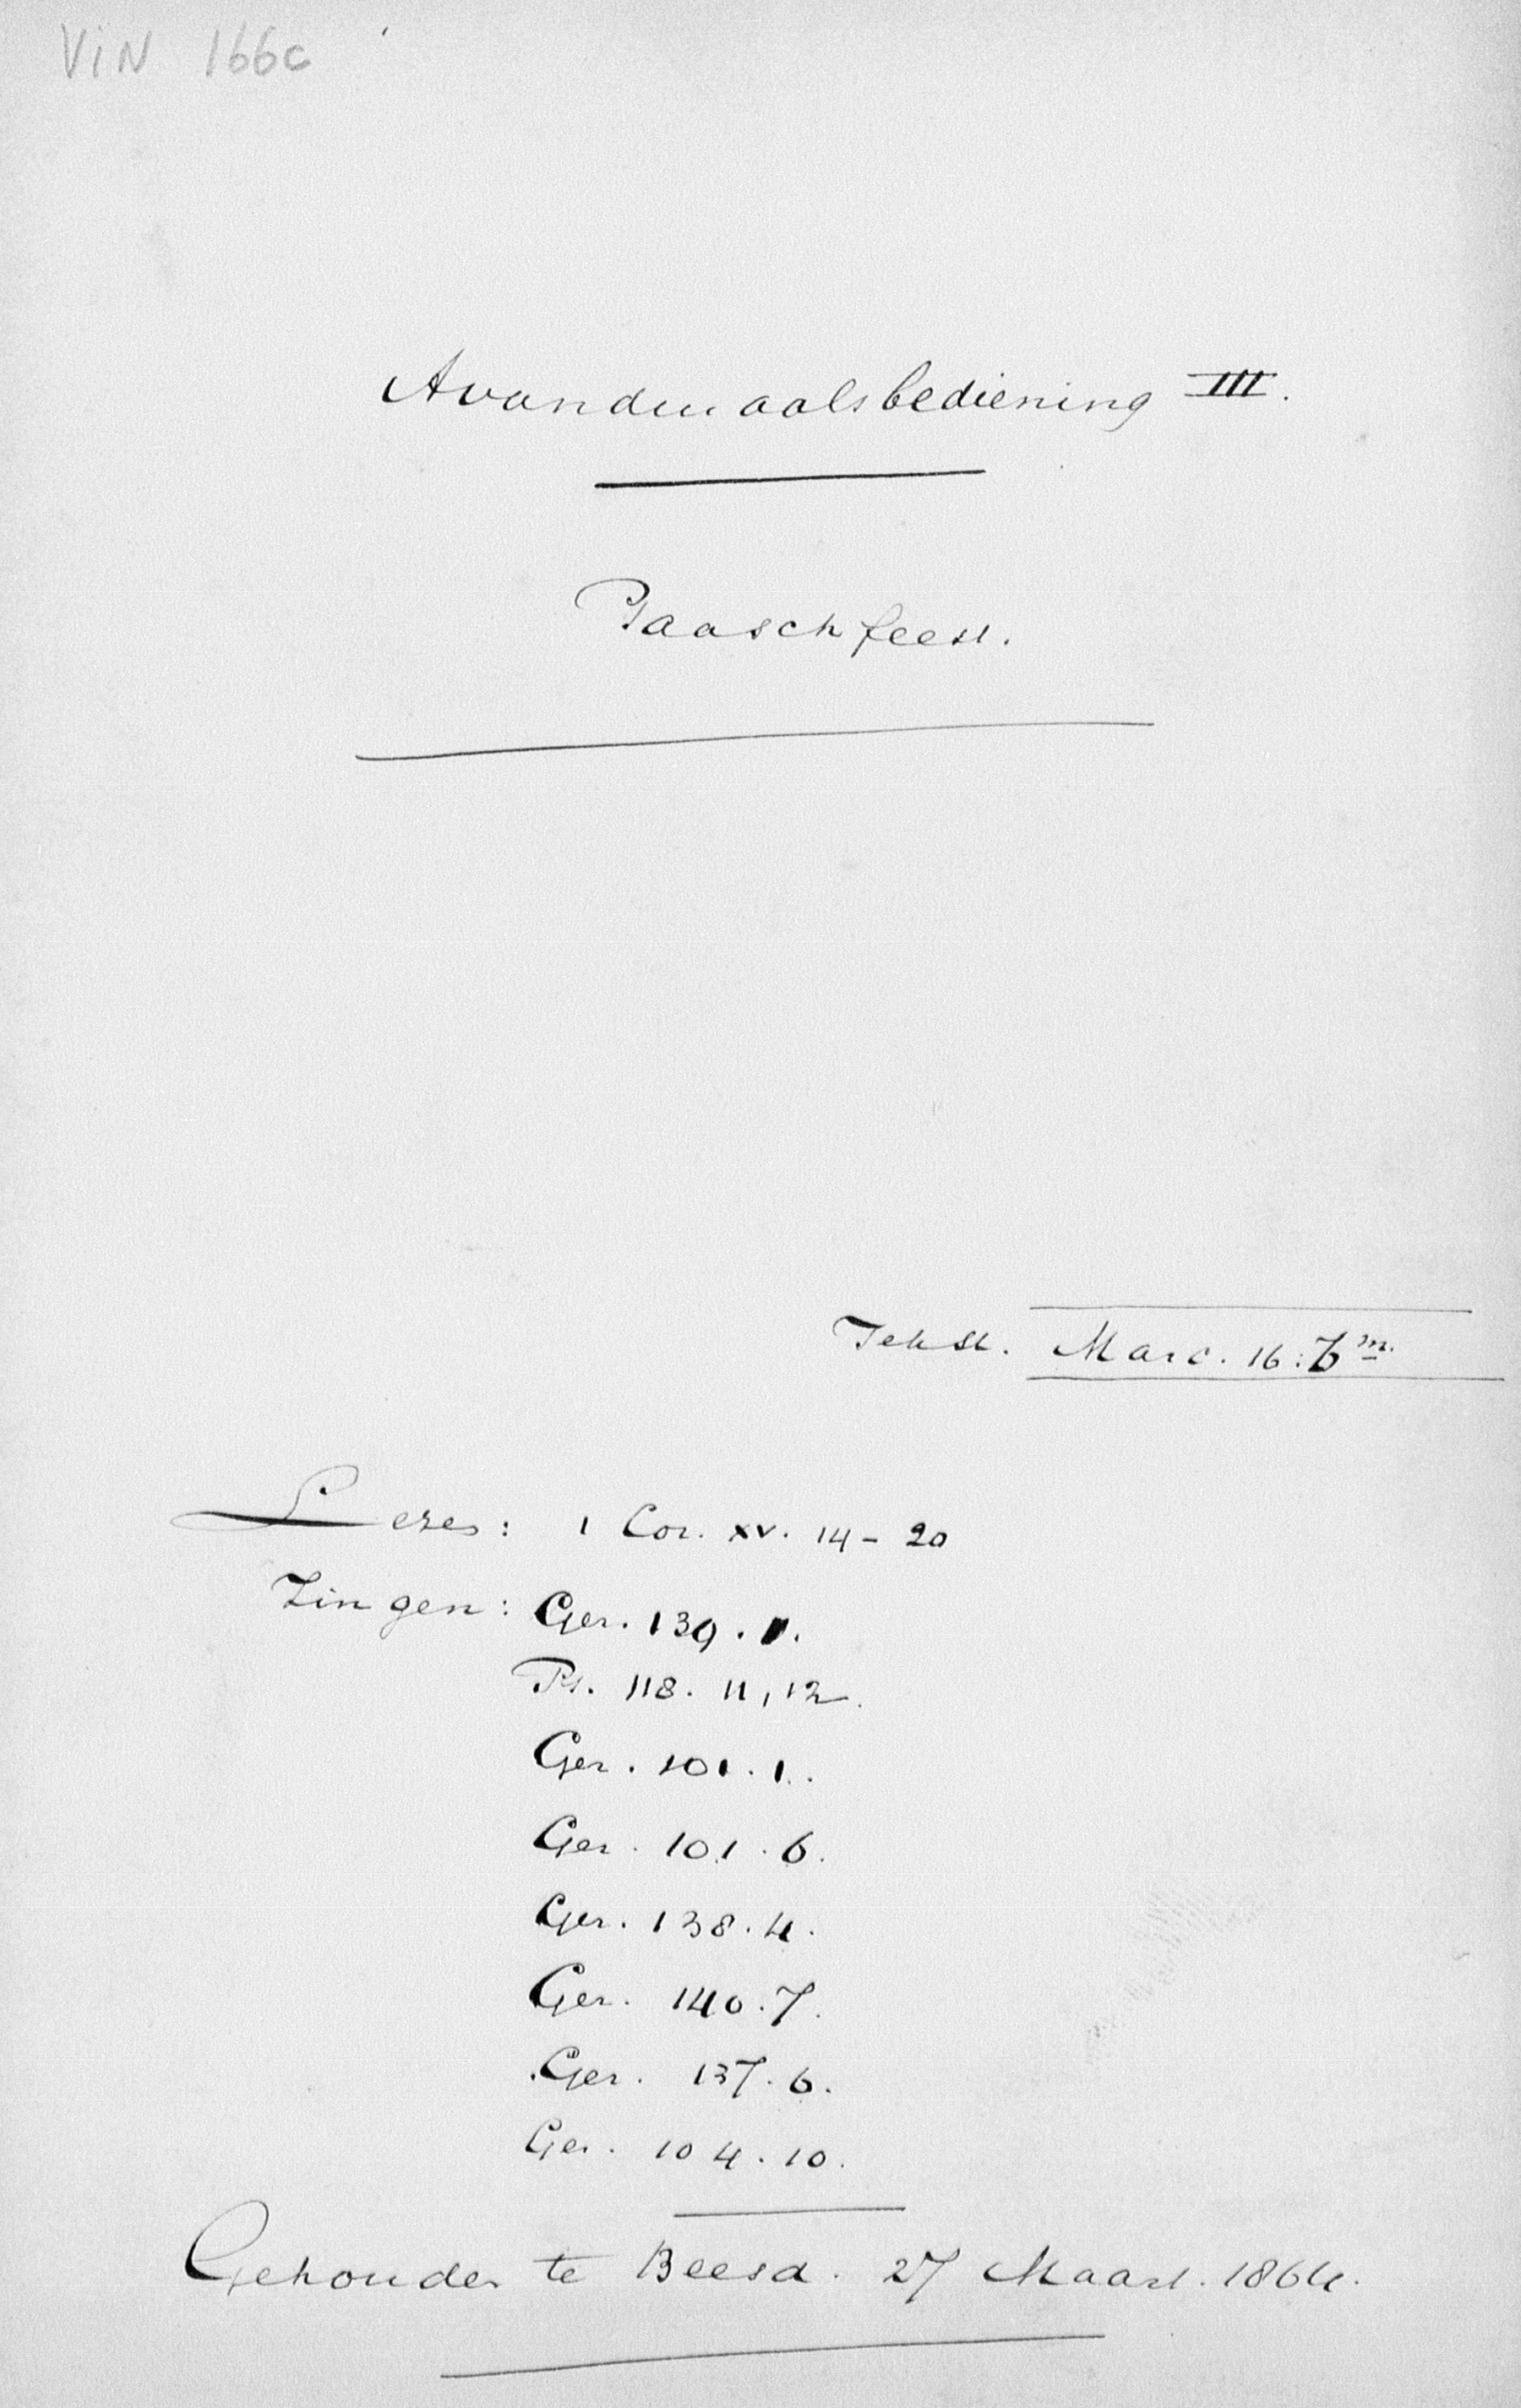 VIN 166c
Avondmaalsbediening III.
Paaschfeest.
Tekst. Marc. 16:6m.
Lezen: 1 Cor. XV. 14-20
Zingen: Gez. 139. 1.
Ps. 118. 11, 12.
Gez. 101. 1.
Gez. 101. 6.
Gez. 138. 4.
Gez. 140. 7.
Gez. 137. 6.
Gez. 104. 10.
Gehouden te Beesd. 27 Maart. 1864.